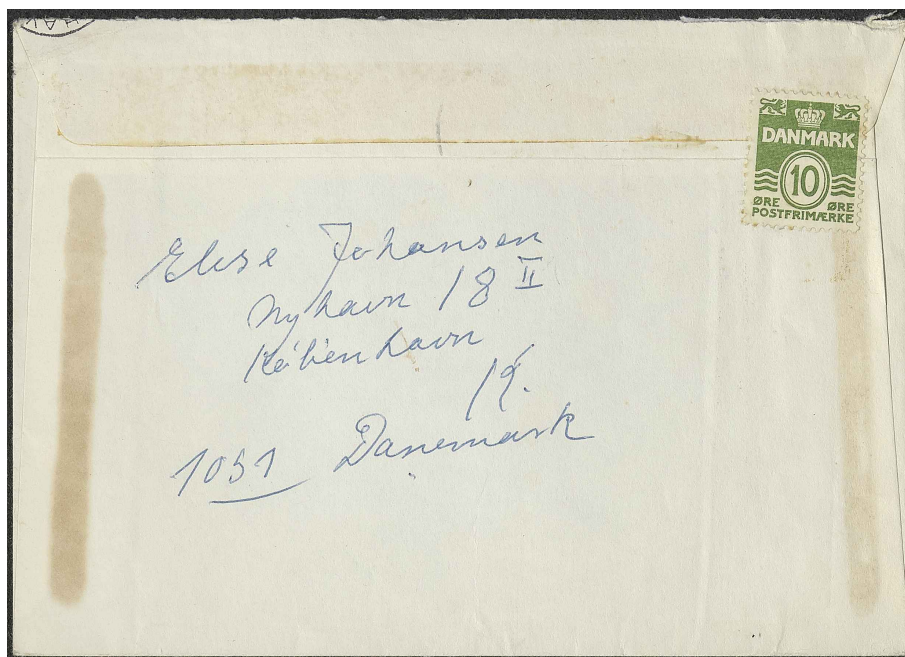 HAV
DANMARK
10
ØRE ØRE
POSTFRIMÆRKE
Elise Johansen
Nyhavn 18 II
København
K.
1051 Danemark